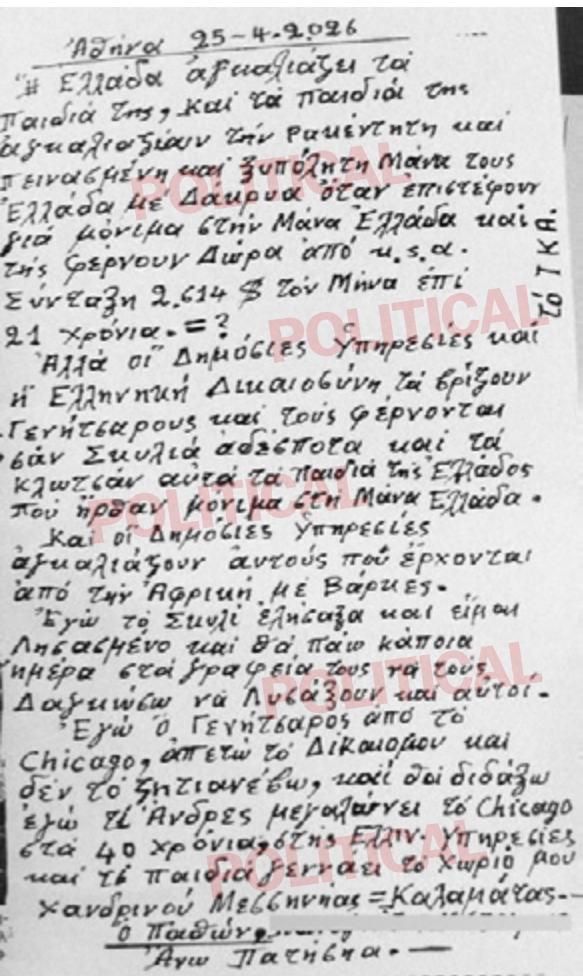 Ἀθήνα 25-4-2026
"Η Ελλάδα ἀγκαλιάζει τά
παιδιά της, καί τά παιδιά της
ἀγκαλιαζιάυν τήν ρακέντητη καί
πεινασμένη καί ξυπόλητη Μάνα τους
Ἑλλάδα με Δάκρυα ὅταν ἐπιστέφουν
γιά μόνιμα στήν Μάνα Ἑλλάδα καί
τῆς φέρνουν Δώρα ἀπό u.s.a.
Σύνταξη 2.614 $ τόν Μήνα ἐπί
21 χρόνια. = ?
τό ΙΚΑ.
Ἀλλά οἱ Δημόσιες Ὑπηρεσίες καί
ἡ Ἑλληνηκή Δικαιοσύνη τά βρίζουν
Γενήτσαρους καί τούς φέρνονται
σάν Σκυλιά ἀδέσποτα καί τά
κλωτσάν αὐτά τά παιδιά τῆς Ἑλλάδος
πού ἦρθαν μόνιμα στή Μάνα Ἑλλάδα.
Καί οἱ Δημόσιες Ὑπηρεσίες
ἀγκαλιάζουν αυτούς πού ἔρχονται
ἀπό τήν Ἀφρική με Βάρκες.
Ἐγώ τό Σκυλί ἐλήσαξα καί εἶμαι
Λησασμένο καί θά πάω κάποια
ημέρα στά γραφεία τους νά τούς
Δαγκώσω νά Λυσάξουν καί αὐτοί.
Ἐγώ ὁ Γενήτσαρος ἀπό τό
Chicago, ἀπετώ τό Δίκαιομου καί
δέν τό ζητιανέβω, καί θά διδάξω
ἐγώ τί Ἄνδρες μεγαλώνει τό Chicago
στά 40 χρόνια, στῆς Ἑλλην. Υπηρεσίες
καί τί παιδιά γεννάει τό χωριό μου
Χανδρινού Μεσσηνίας = Καλαμάτας.-
Ὁ Παθών,
Ἄνω Πατήσηα. —
POLITICAL
POLITICAL
POLITICAL
POLITICAL
POLITICAL